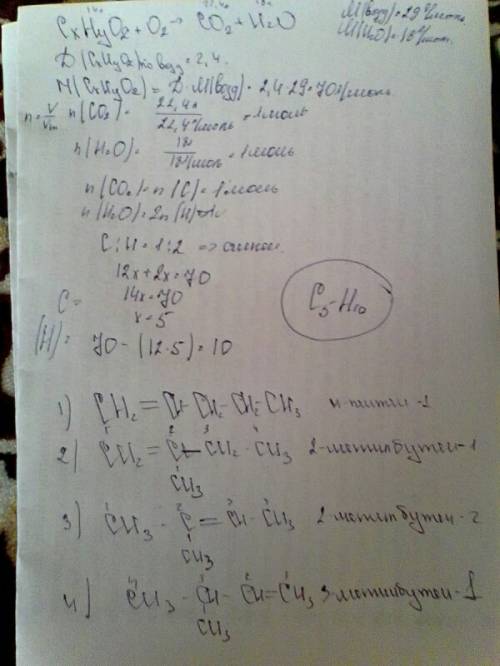 CxHyO2 + O2 → CO2 + H2O
M(возд) = 29 г/моль
M(H2O) = 18 г/моль
D(CxHyO2) по возд = 2,4.
M(CxHyO2) = D · M(возд) = 2,4 · 29 = 70 г/моль
n = V/Vm n(CO2) = 22,4л / 22,4 л/моль = 1 моль
n(H2O) = 18г / 18 г/моль = 1 моль
n(CO2) = n(C) = 1 моль
n(H2O) = 2n(H)
C : H = 1 : 2 =>
12x + 2x = 70
14x = 70
x = 5
C =
(H) = 70 - (12·5) = 10
C5H10
1) CH2 = CH - CH2 - CH2 - CH3
2) CH2 = C - CH2 - CH3 2-метилбутен-1
CH3
3) CH3 - C = CH - CH3 2-метилбутен-2
CH3
4) CH3 - CH - CH = CH3 3-метилбутен-1
CH3